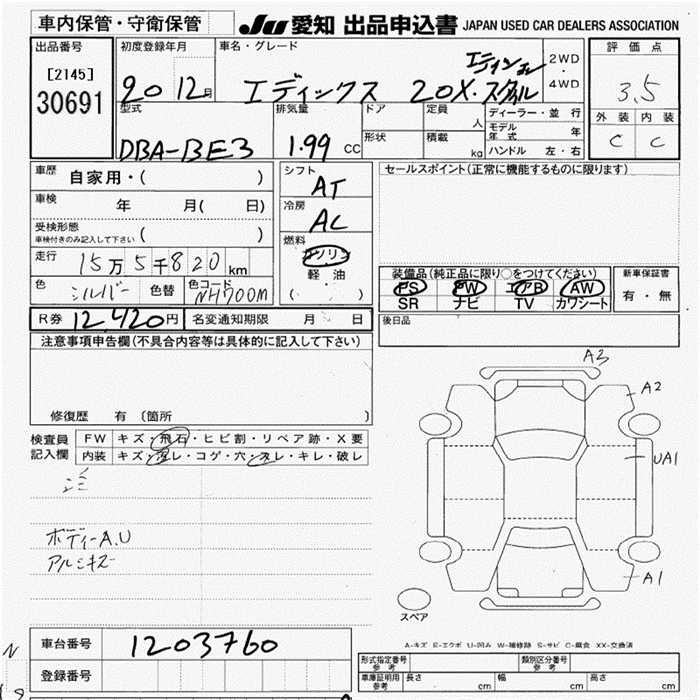 車内保管・守衛保管 JU 愛知 出品申込書 JAPAN USED CAR DEALERS ASSOCIATION
出品番号 初度登録年月 車名・グレード 2WD・4WD 評価点
[2145] 30691 20 12月 エディックス 20X・スタイル エディション 3.5
型式 排気量 ドア 定員 人 ディーラー・並行 外装 内装
DBA-BE3 1.99 CC 形状 積載 kg モデル年式 年 C C
ハンドル 左・右
車歴 自家用・( ) シフト AT セールスポイント(正常に機能するものに限ります)
車検 年 月( 日) 冷房 AC
受検形態 車検付きのみ記入して下さい ( ) 燃料 ガソリン
走行 15万5千820km 軽油 装備品(純正品に限り○をつけてください) 新車保証書
色 シルバー 色替 色コード NH700M ( ・ ) PS PW エアB AW 有・無
SR ナビ TV カワシート
R券 12,420円 名変通知期限 月 日 後日品
注意事項申告欄(不具合内容等は具体的に記入して下さい)
A3
A2
修復歴 有 (箇所 )
検査員記入欄 FW キズ・飛石・ヒビ割・リペア跡・X要
内装 キズ・汚レ・コゲ・穴・スレ・キレ・破レ
UA1
ボディーA.U
アルミキズ
A1
スペア
A-キズ E-エクボ U-凹み W-補修跡 S-サビ C-腐食 XX-交換済
車台番号 1203760
登録番号
型式指定番号 参考 類別区分番号 参考
車庫証明用 参考 長さ cm 幅 cm 高さ cm
N